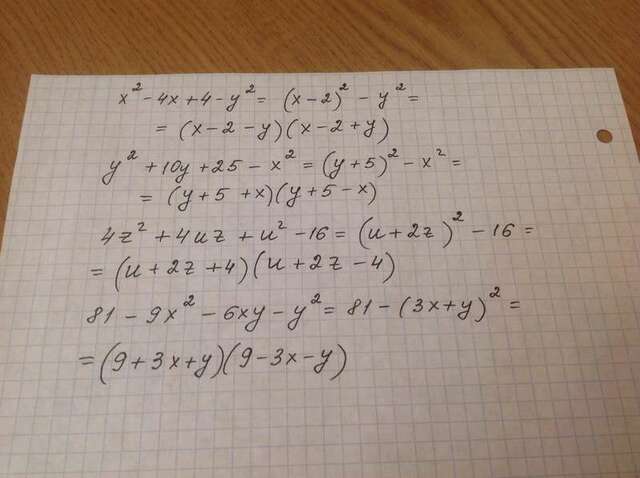 x² - 4x + 4 - y² = (x - 2)² - y² =
= (x - 2 - y)(x - 2 + y)
y² + 10y + 25 - x² = (y + 5)² - x² =
= (y + 5 + x)(y + 5 - x)
4z² + 4uz + u² - 16 = (u + 2z)² - 16 =
= (u + 2z + 4)(u + 2z - 4)
81 - 9x² - 6xy - y² = 81 - (3x + y)² =
= (9 + 3x + y)(9 - 3x - y)